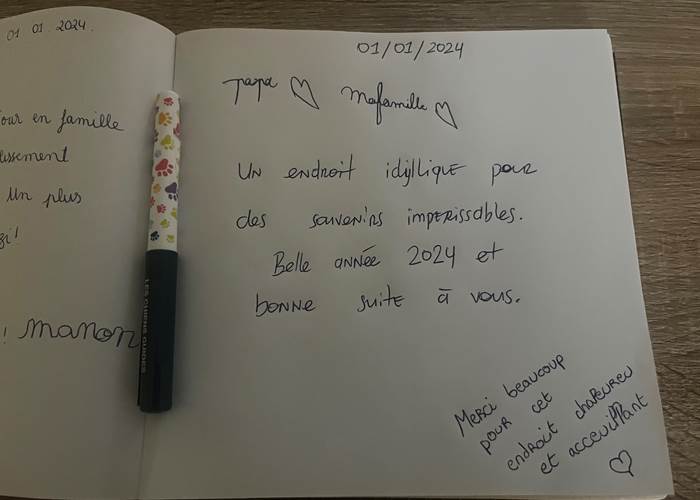 01 01 2024.
our en famille
issement
un plus
manon
LES CHIENS GUIDES
01/01/2024
Papa ♡ Mafamille ♡
Un endroit idyllique pour
des souvenirs imperissables.
Belle année 2024 et
bonne suite à vous.
Merci beaucoup
pour cet
endroit chaleureu
et acceuillant
♡